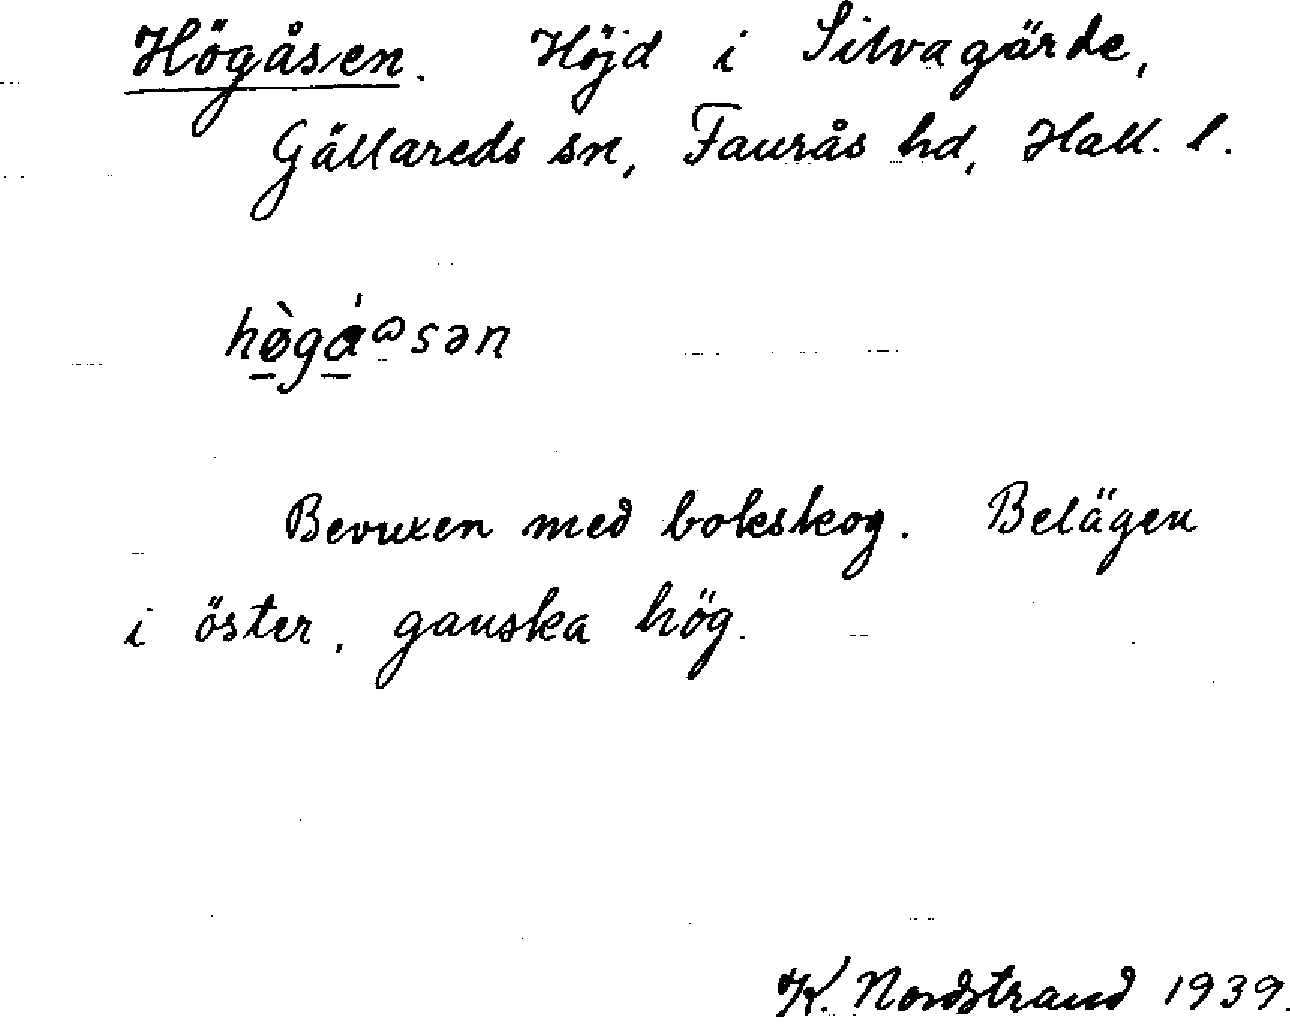 Högåsen. Höjd i Silvagärde,
Gällareds sn, Faurås hd, Hall. l.
hø̀gɑ́ᵓsən
Bevuxen med bokskog. Belägen
i öster, ganska hög.
K. Nordstrand 1939.